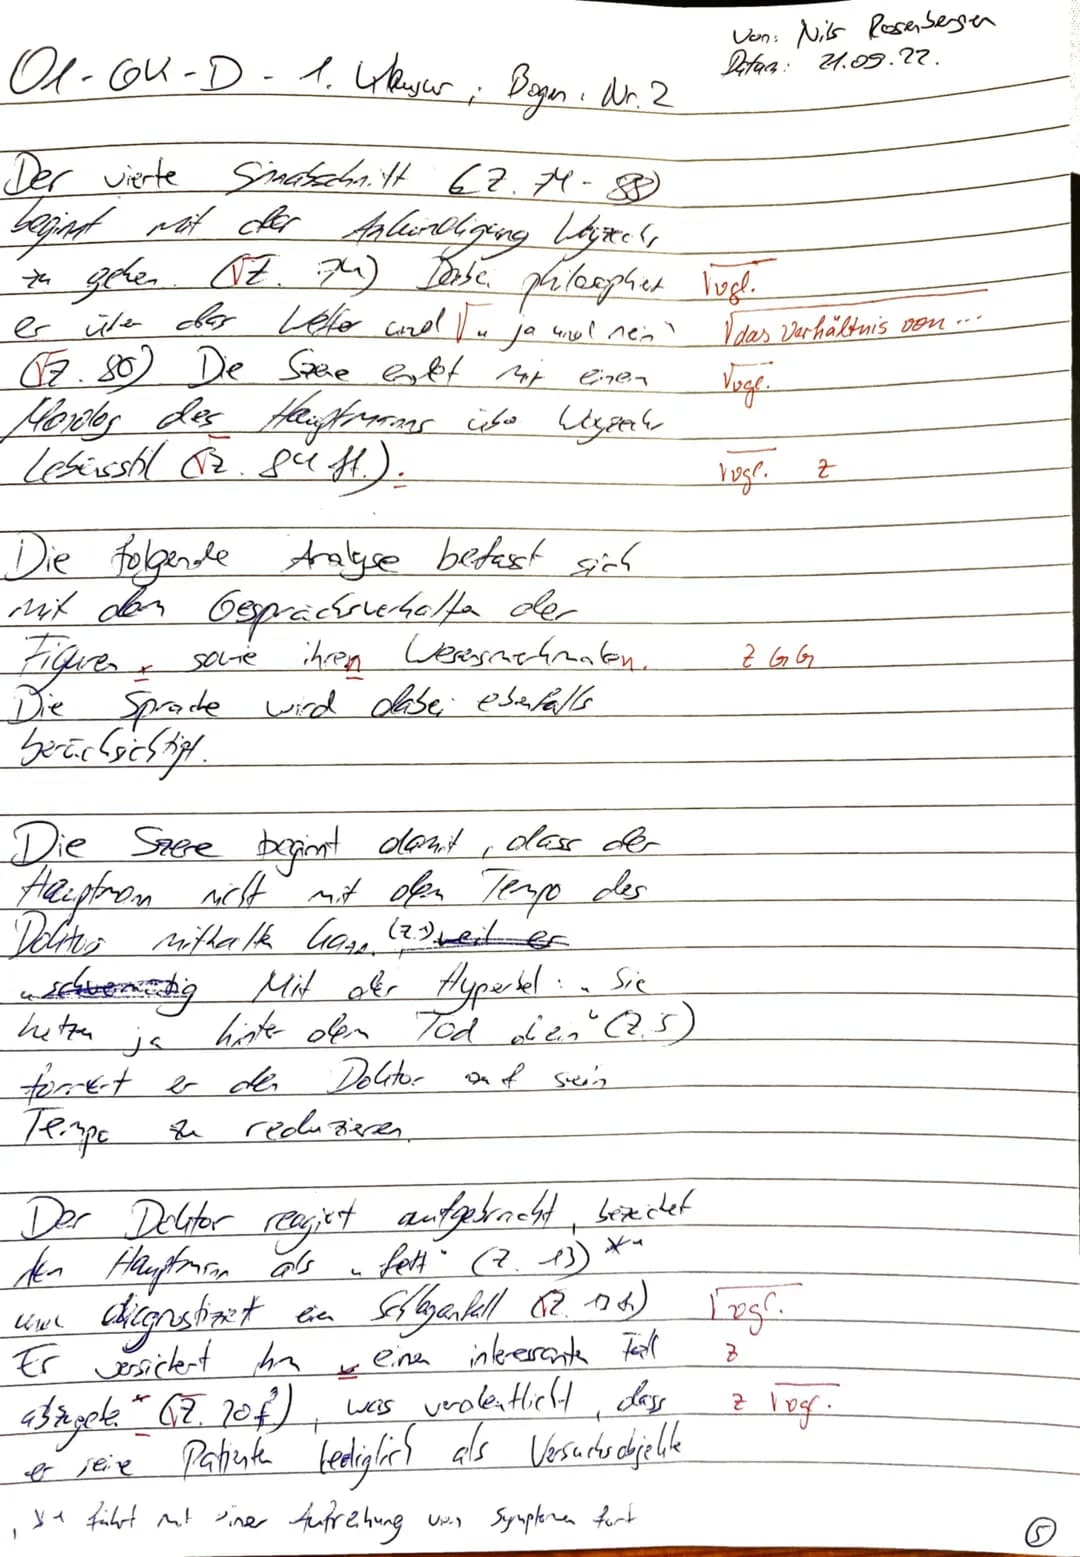 Von: Nils Rosenbergen
Datum: 21.09.22.
Q1-GK-D-1. Klausur, Bogen Nr. 2
Der vierte Sinnabschnitt (Z. 74-88)
beginnt mit der Ankündigung Woyzecks
zu gehen. (√Z. 74) Dabei philosophiert √vgl.
er über das und √„ ja und nein" √das Verhältnis von ...
(√Z. 80) Die Szene endet mit einen √vgl.
Monolog des Hauptmanns über Woyzecks
Lebensstil (√Z. 84 ff.). √vgl. Z
Die folgende Analyse befasst sich
mit dem Gesprächsverhalten der
Figuren, sowie ihren Wesensmerkmalen. Z G G
Die Sprache wird dabei ebenfalls
berücksichtigt.
Die Szene beginnt damit, dass der
Hauptmann nicht mit dem Tempo des
Doktors mithalten kann. weil er
Mit der Hyperbel: „ Sie
hetzen ja hinter dem Tod drein" (Z. 5)
er den Doktor auf sein
Tempo zu reduzieren.
Der Doktor reagiert aufgebracht, bezeichnet
den Hauptmann als „ fett" (Z. 13) *¹
und diagnostiziert einen Schlaganfall √vgl.
Er versichert ihm einen interessanten Fall Z
abzugeben" (√Z. 20f), was verdeutlicht, dass Z √vgl.
er seine Patienten lediglich als Versuchsobjekte
, *¹ führt mit einer Aufreihung von Symptomen fort
5